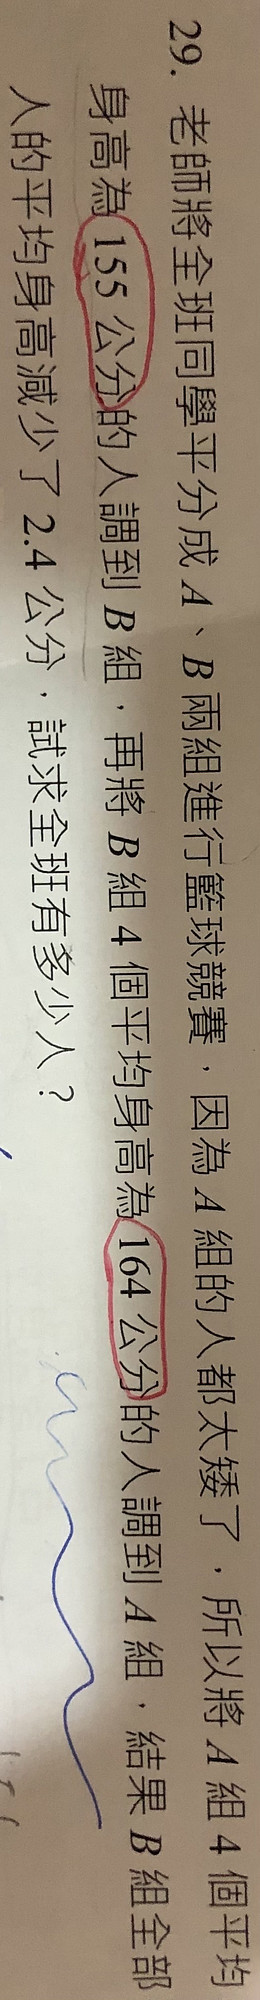 29. 老師將全班同學平分成 A、B 兩組進行籃球競賽，因為 A 組的人都太矮了，所以將 A 組 4 個平均
身高為 155 公分的人調到 B 組，再將 B 組 4 個平均身高為 164 公分的人調到 A 組，結果 B 組全部
人的平均身高減少了 2.4 公分，試求全班有多少人？